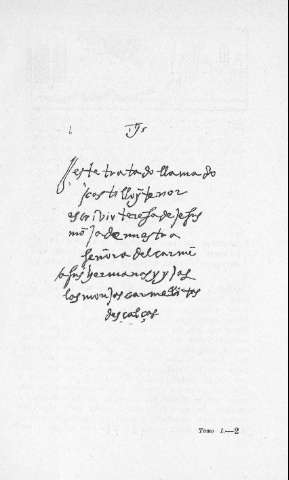 Jhs
este tratado llamado
castillo ynterior
escrivio teresa de jesus
mōja de nuestra
señora del carmē
a sus hermanas y yjas
las monjas carmelitas
descalças
Tomo I.—2